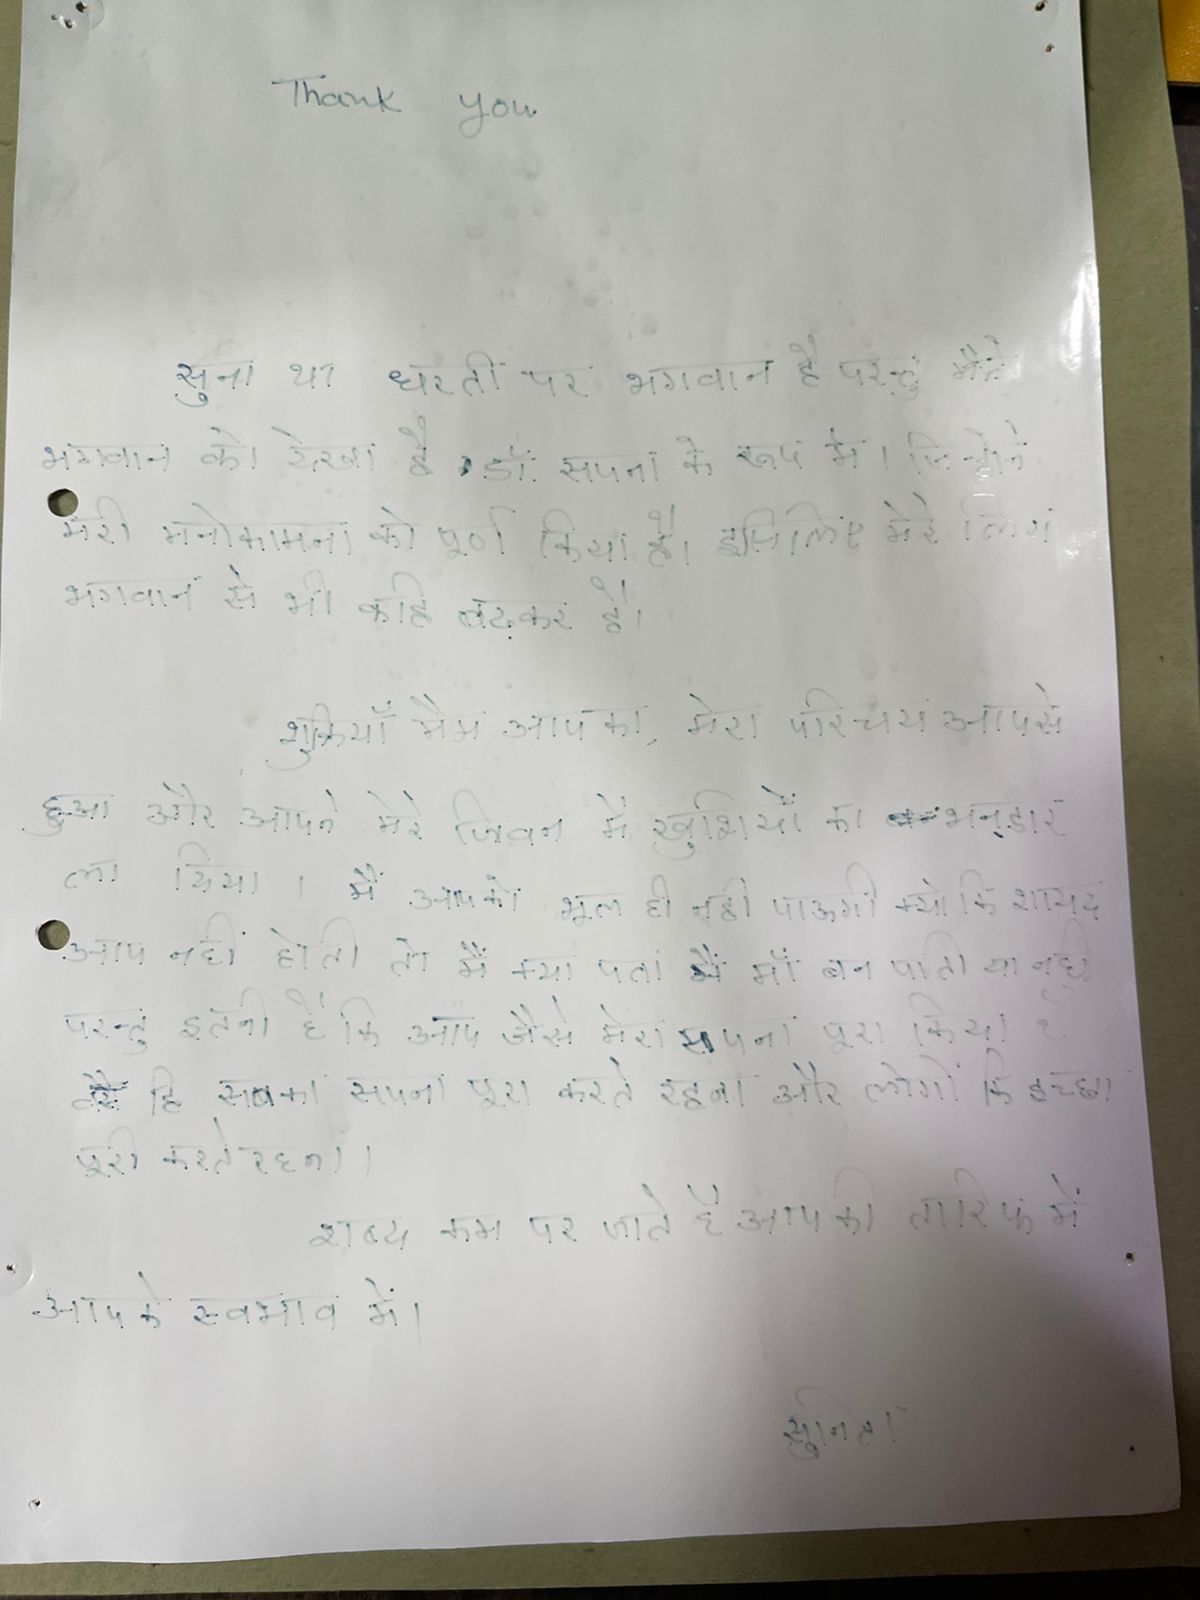 Thank you
सुना था धरती पर भगवान है परन्तु मैंने
भगवान को देखा है डॉ. सपना के रूप में। जिन्होंने
मेरी मनोकामना को पूर्ण किया है। इसिलिए मेरे लिए
भगवान से भी कहि बढ़कर है।
शुक्रियाँ मैम आपका, मेरा परिचय आपसे
हुआ और आपने मेरे जिवन में खुशियों का भन्डार
ला दिया। मैं आपको भूल ही नहीं पाऊगी क्यो कि शायद
आप नहीं होती तो मैं क्या पता मैं माँ बन पाति या नही
परन्तु इतनी है कि आप जैसे मेरा सपना पूरा किया है
वैसे हि सबका सपना पूरा करते रहना और लोगों कि इच्छा
पूरी करते रहना।
शब्द कम पर जाते है आपकी तारिफ में
आपके स्वभाव में।
सुनिता